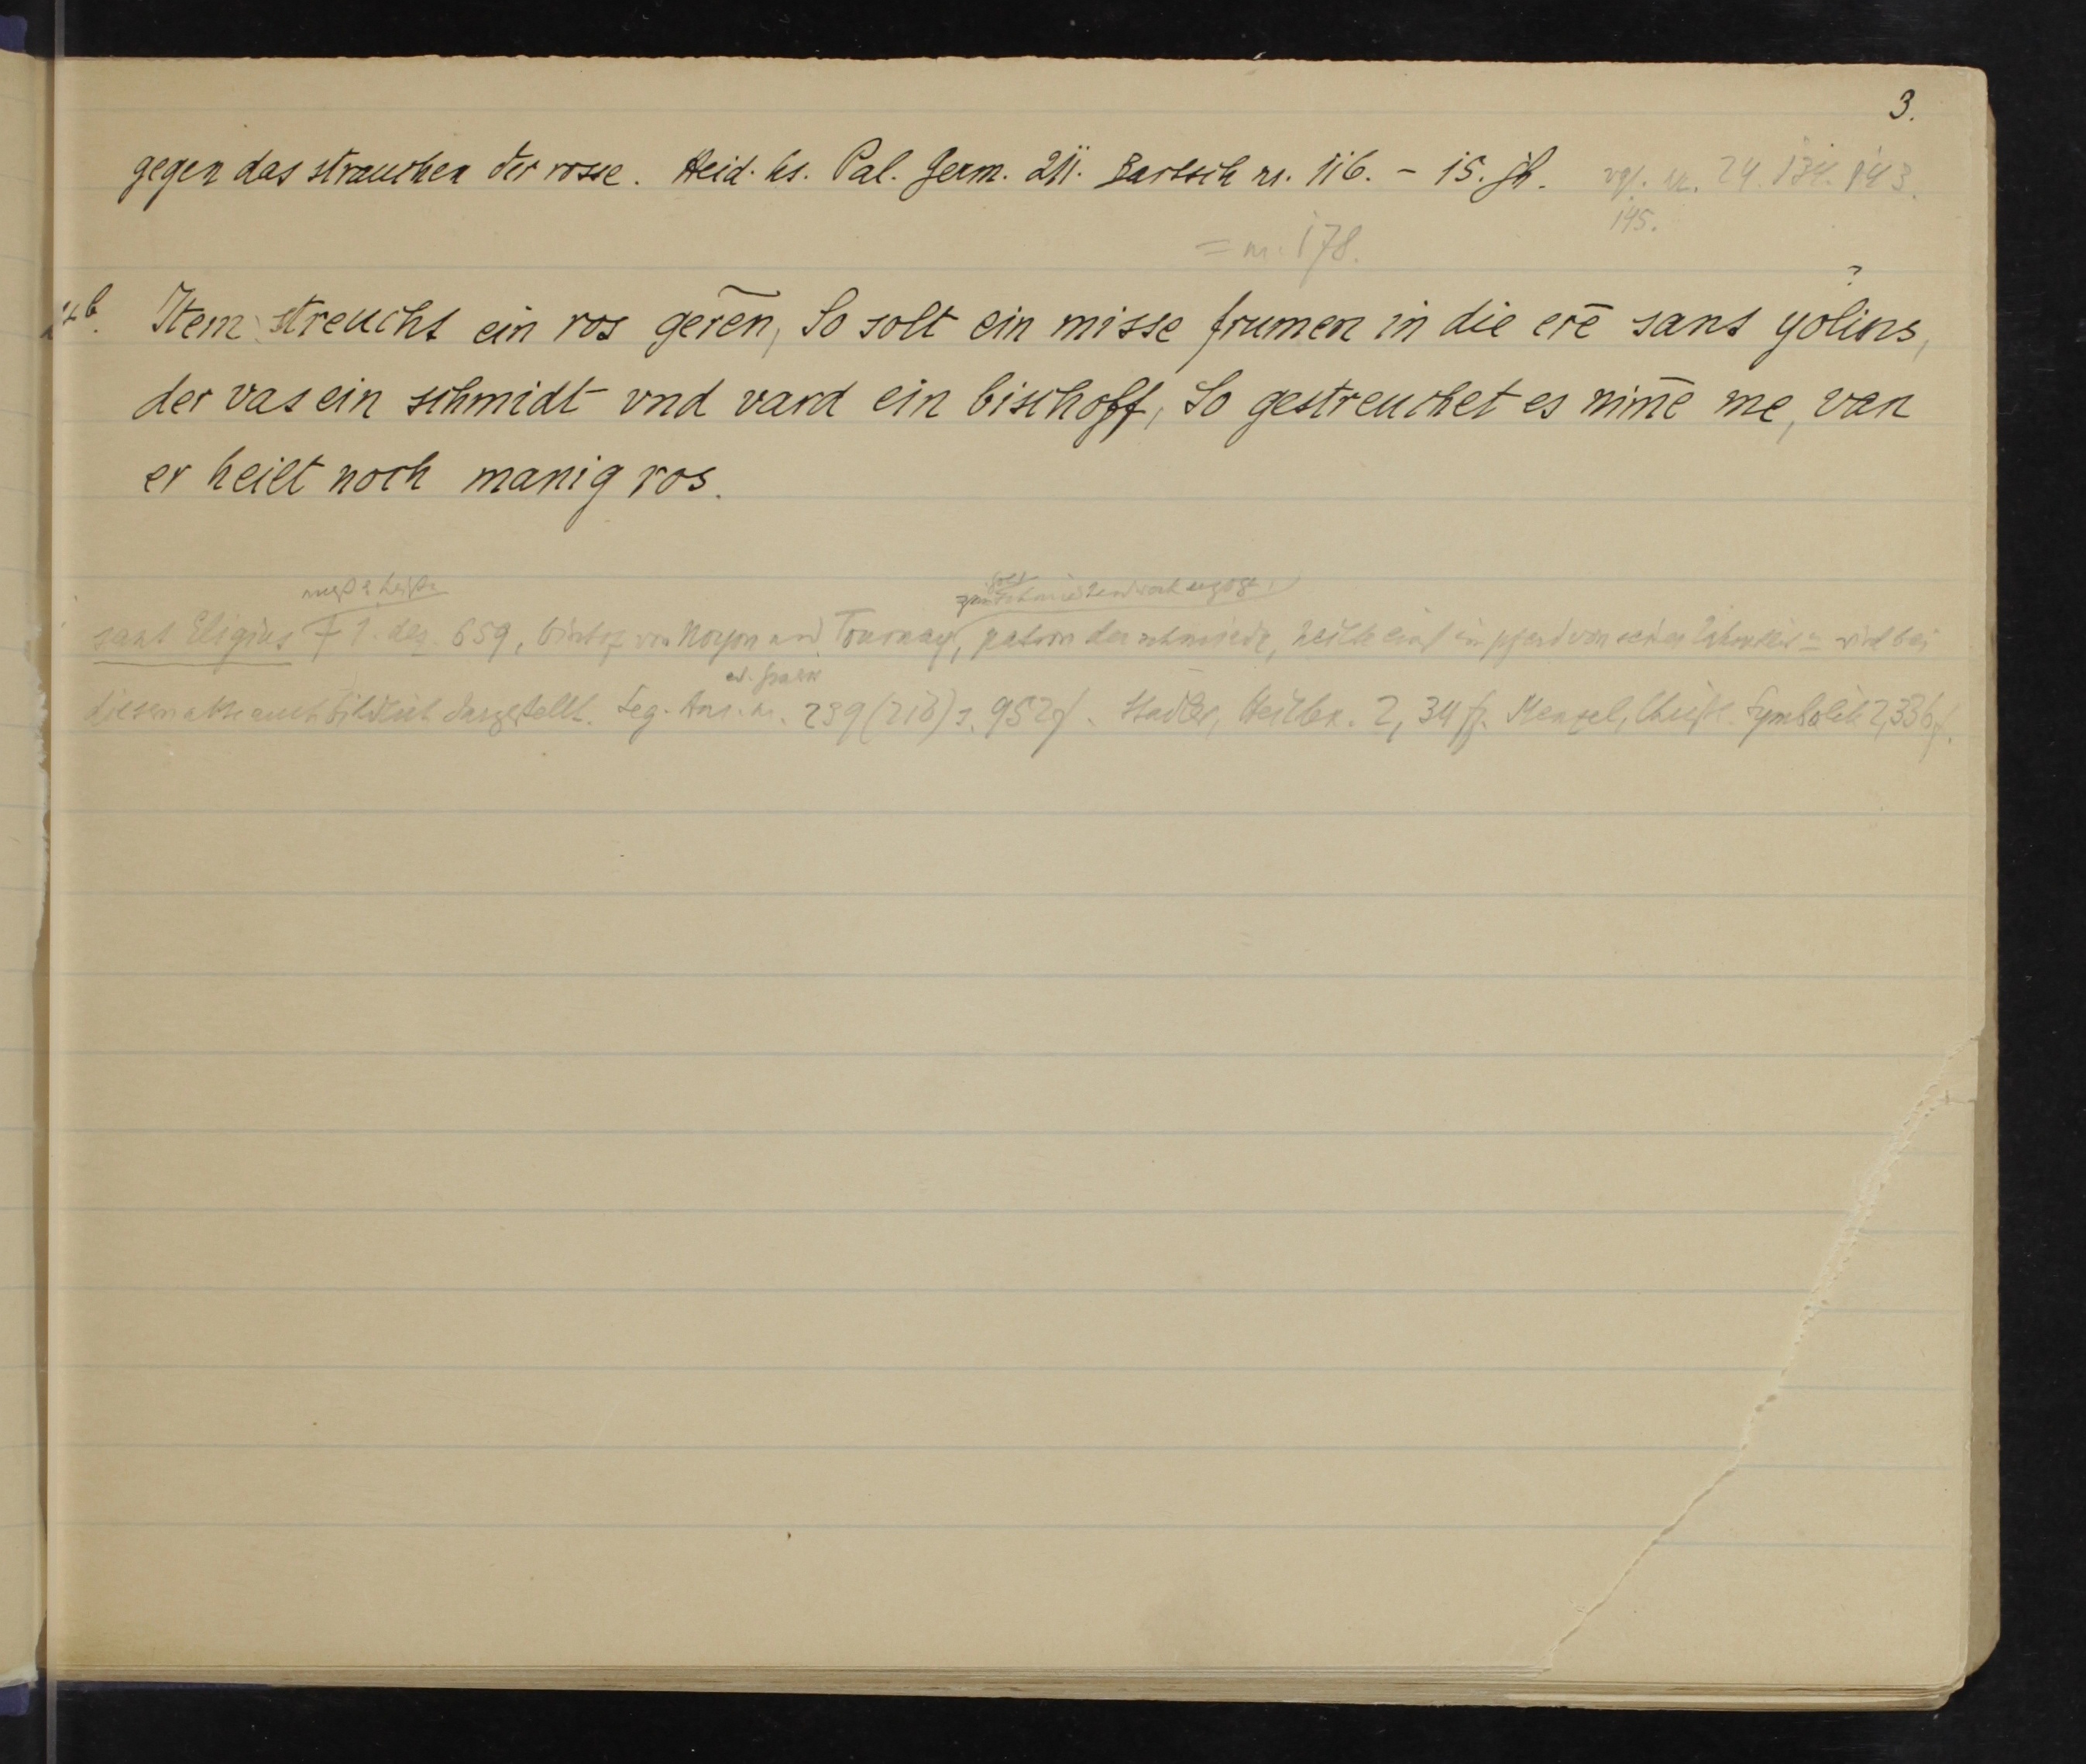 3.
gegen das strauchen der rosse. Heid. hs. Pal. Germ. 211. Bartsch nr. 116. – 15. jh. vgl. nr. 24. 134. 143.
145.
= nr. 178.
?
Item streucht ein ros gerēn, So solt ein misse frumen in die erē sant yolins,
der vas ein schmidt vnd vard ein bischoff, So gestreuchet es nim̄e me, van
er heilt noch manig ros.
sant Eligius † 1. dez. 659, bischof von Noyon und Tournay, patron der schmiede, heilte einst ein pferd von seiner wird bei
ed. Graesse
diesem akte auch bildlich dargestellt. Leg. Aur. nr. 239 (210) s. 952f. Stadler, Heillex. 2, 34 ff. Menzel, Christl. Symbolik 2, 336f.